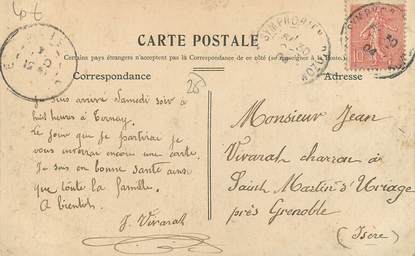 CARTE POSTALE
Certains pays étrangers n'acceptent pas la Correspondance de ce côté (se renseigner à la Poste).
Correspondance
Adresse
26
Je suis arrivé Samedi soir à
huit heures à Ternay.
Le jour que je partirai je
vous enverrai encore une carte.
Je suis en bonne santé ainsi
que toute la famille.
A bientôt
J. Vivarat
Monsieur Jean
Vivarat charron à
Saint Martin d'Uriage
près Grenoble
(Isère)
10